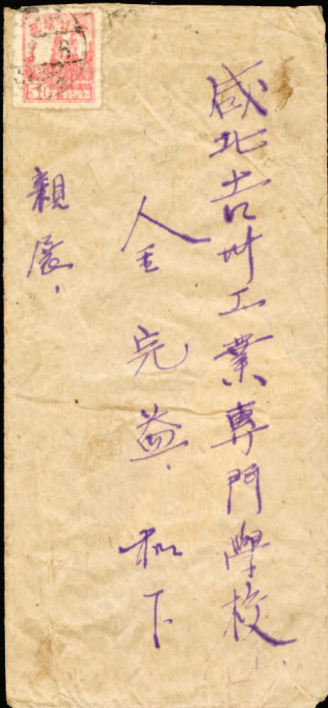 咸北吉州工業專門學校
金完益 机下
親展
50